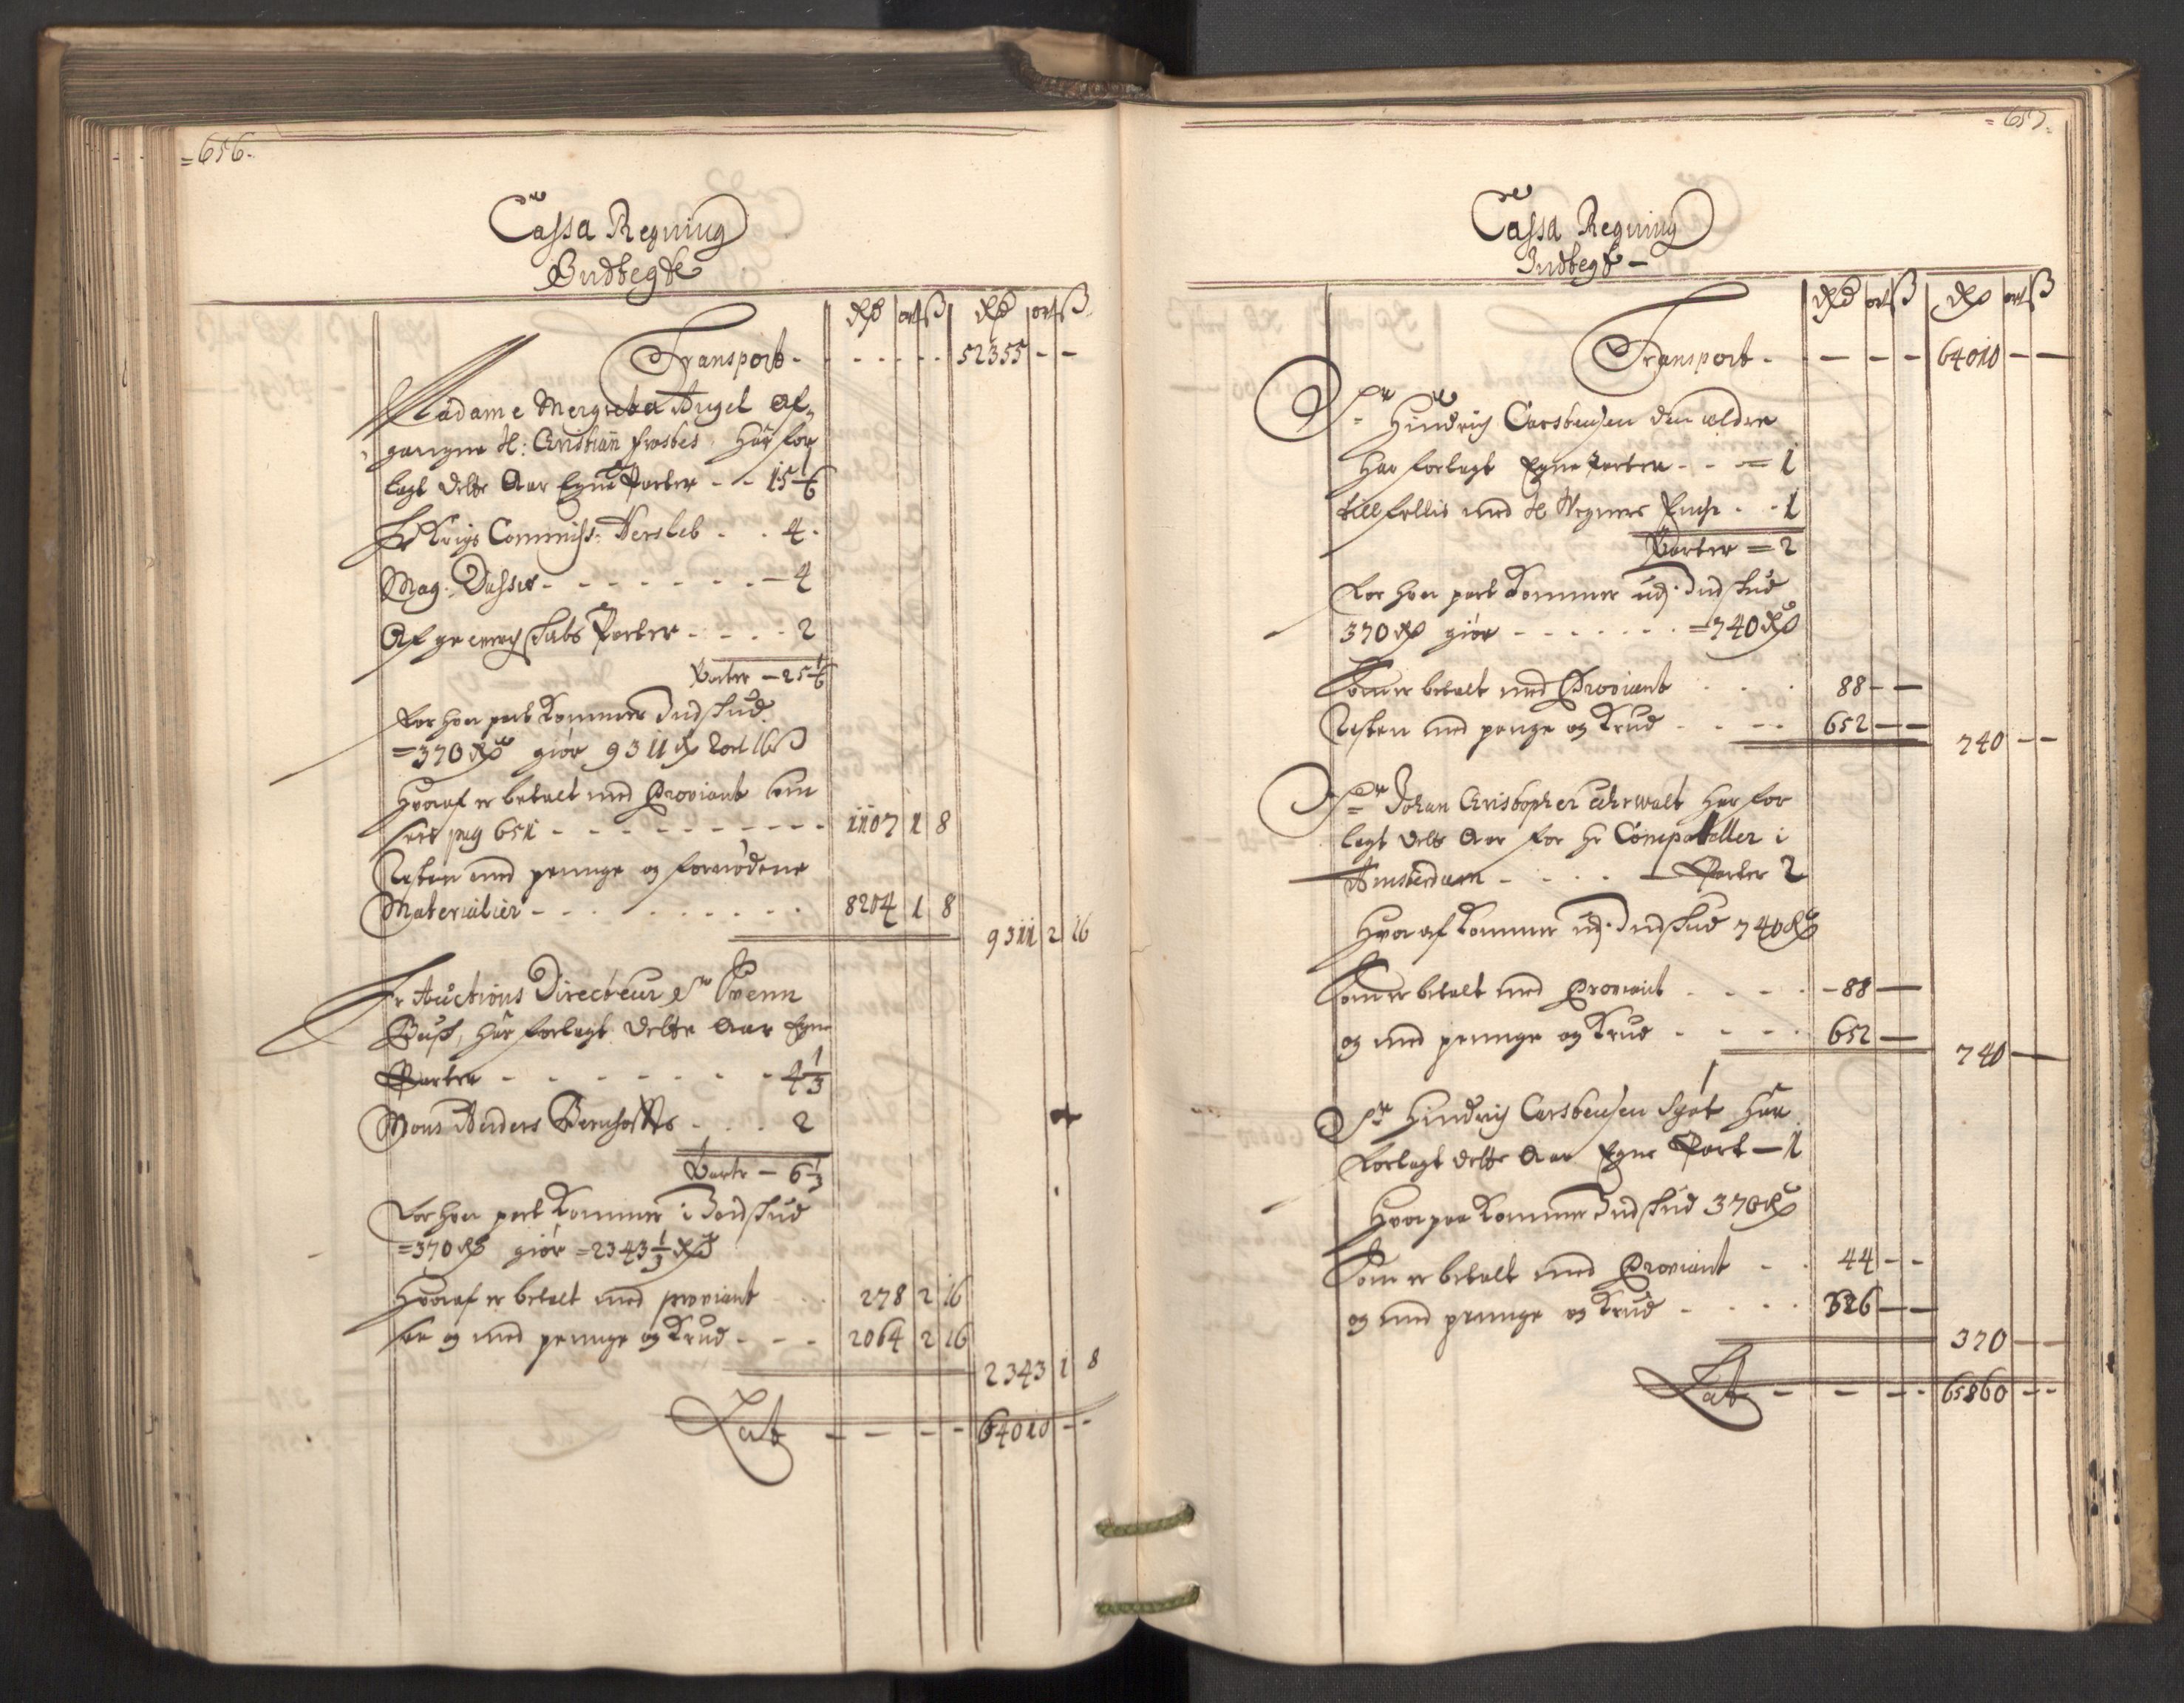 =656.
Cassa Regning
Indtegt
Rd ort ß Rd ort ß
Transport - - - - - 52355 - -
Madame Mergreta Angel af-
gangne H: Christian Frosbes, har for
lagt dette Aar Egne Parter - - 15 1/6
Hr Krigs Commiss: Hersleb - - 4 -
Mag. Dasser - - - - - - - 4
Afgr Schabs Parter - - - - 2
Parter - 25 1/6
For hver part kommer Indskud
= 370 Rd giør 9311 Rd 2 ort 16 ß
Hvoraf er betalt med Proviant som
sees pag 651 - - - - - - - - - 1107 1 8
Resten med penge og fornødene
Materialier - - - - - - - - 8204 1 8
9311 2 16
Hr Auctions Directeur Sr Svenn
Busk, har forlagt dette Aar Egne
Parter - - - - - - - 4 1/3
Mons Anders Bernhofts - - - 2
Parter - 6 1/3
For hver part kommer i Indskud
= 370 Rd giør = 2343 1/3 Rd
Hvoraf er betalt med proviant - - 278 2 16
og med penge og Krud - - - 2064 2 16
2343 1 8
Lat - - - - 64010 - -
= 657.
Cassa Regning
Indtegt -
Rd ort ß Rd ort ß
Transport - - - - 64010 - -
Sr Hindrich Carstensen den ældre
har forlagt Egne Parter - - = 1
till fellis med H Wegners Enche - - 1
Parter = 2
For hver part kommer udj Indskud
370 Rd giør - - - - - - = 740 Rd
Som er betalt med Proviant - - - 88 - -
Resten med penge og Krud - - - - 652 - -
740 - -
Sr Johan Christopher Uhrwalt har for
lagt dette Aar for Hr Compateller i
Amsterdam - - - - - Parter 2
Hvoraf kommer udj Indskud 740 Rd
Som er betalt med Proviant - - - - 88 -
og med penge og Krud - - - - 652 -
740 -
Sr Hindrich Carstensen SGøt har
forlagt dette Aar Egne Part - 1
Hvorpaa kommer Indskud 370 Rd
Som er betalt med Proviant - - 44 - -
og med penge og Krud - - - - 326 - -
370 - -
Lat - - - - 65860 - -